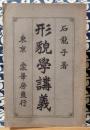 石龍子著
形貌學講義
東京 崇善房發行